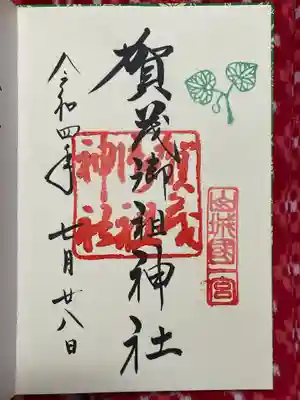 山城國一宮
賀茂御祖神社
賀茂
御祖
神社
令和四年七月廿八日